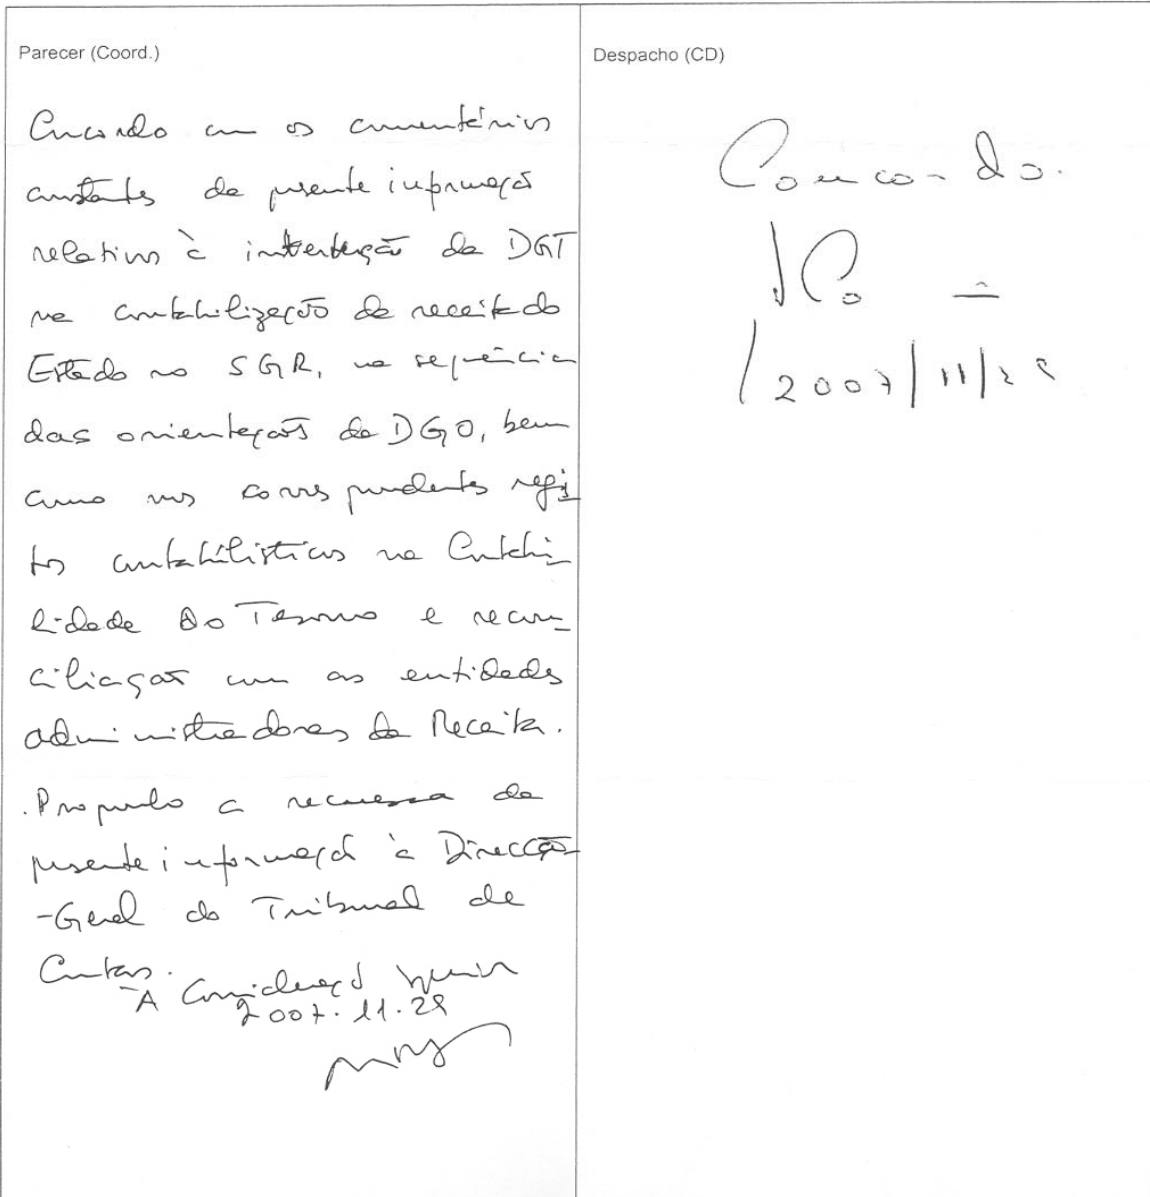 Parecer (Coord.)
Concordo com os comentários
constantes da presente informação
relativos à intervenção da DGT
na contabilização da receita do
Estado no SGR, na sequência
das orientações da DGO, bem
como nos correspondentes regis
tos contabilísticos na Contabi-
lidade do Tesouro e recon-
ciliação com as entidades
administradoras da Receita.
.Proponho a remessa da
presente informação à Direcção
-Geral do Tribunal de
Contas.
À Consideração Superior
2007.11.28
Despacho (CD)
Concordo.
2007/11/